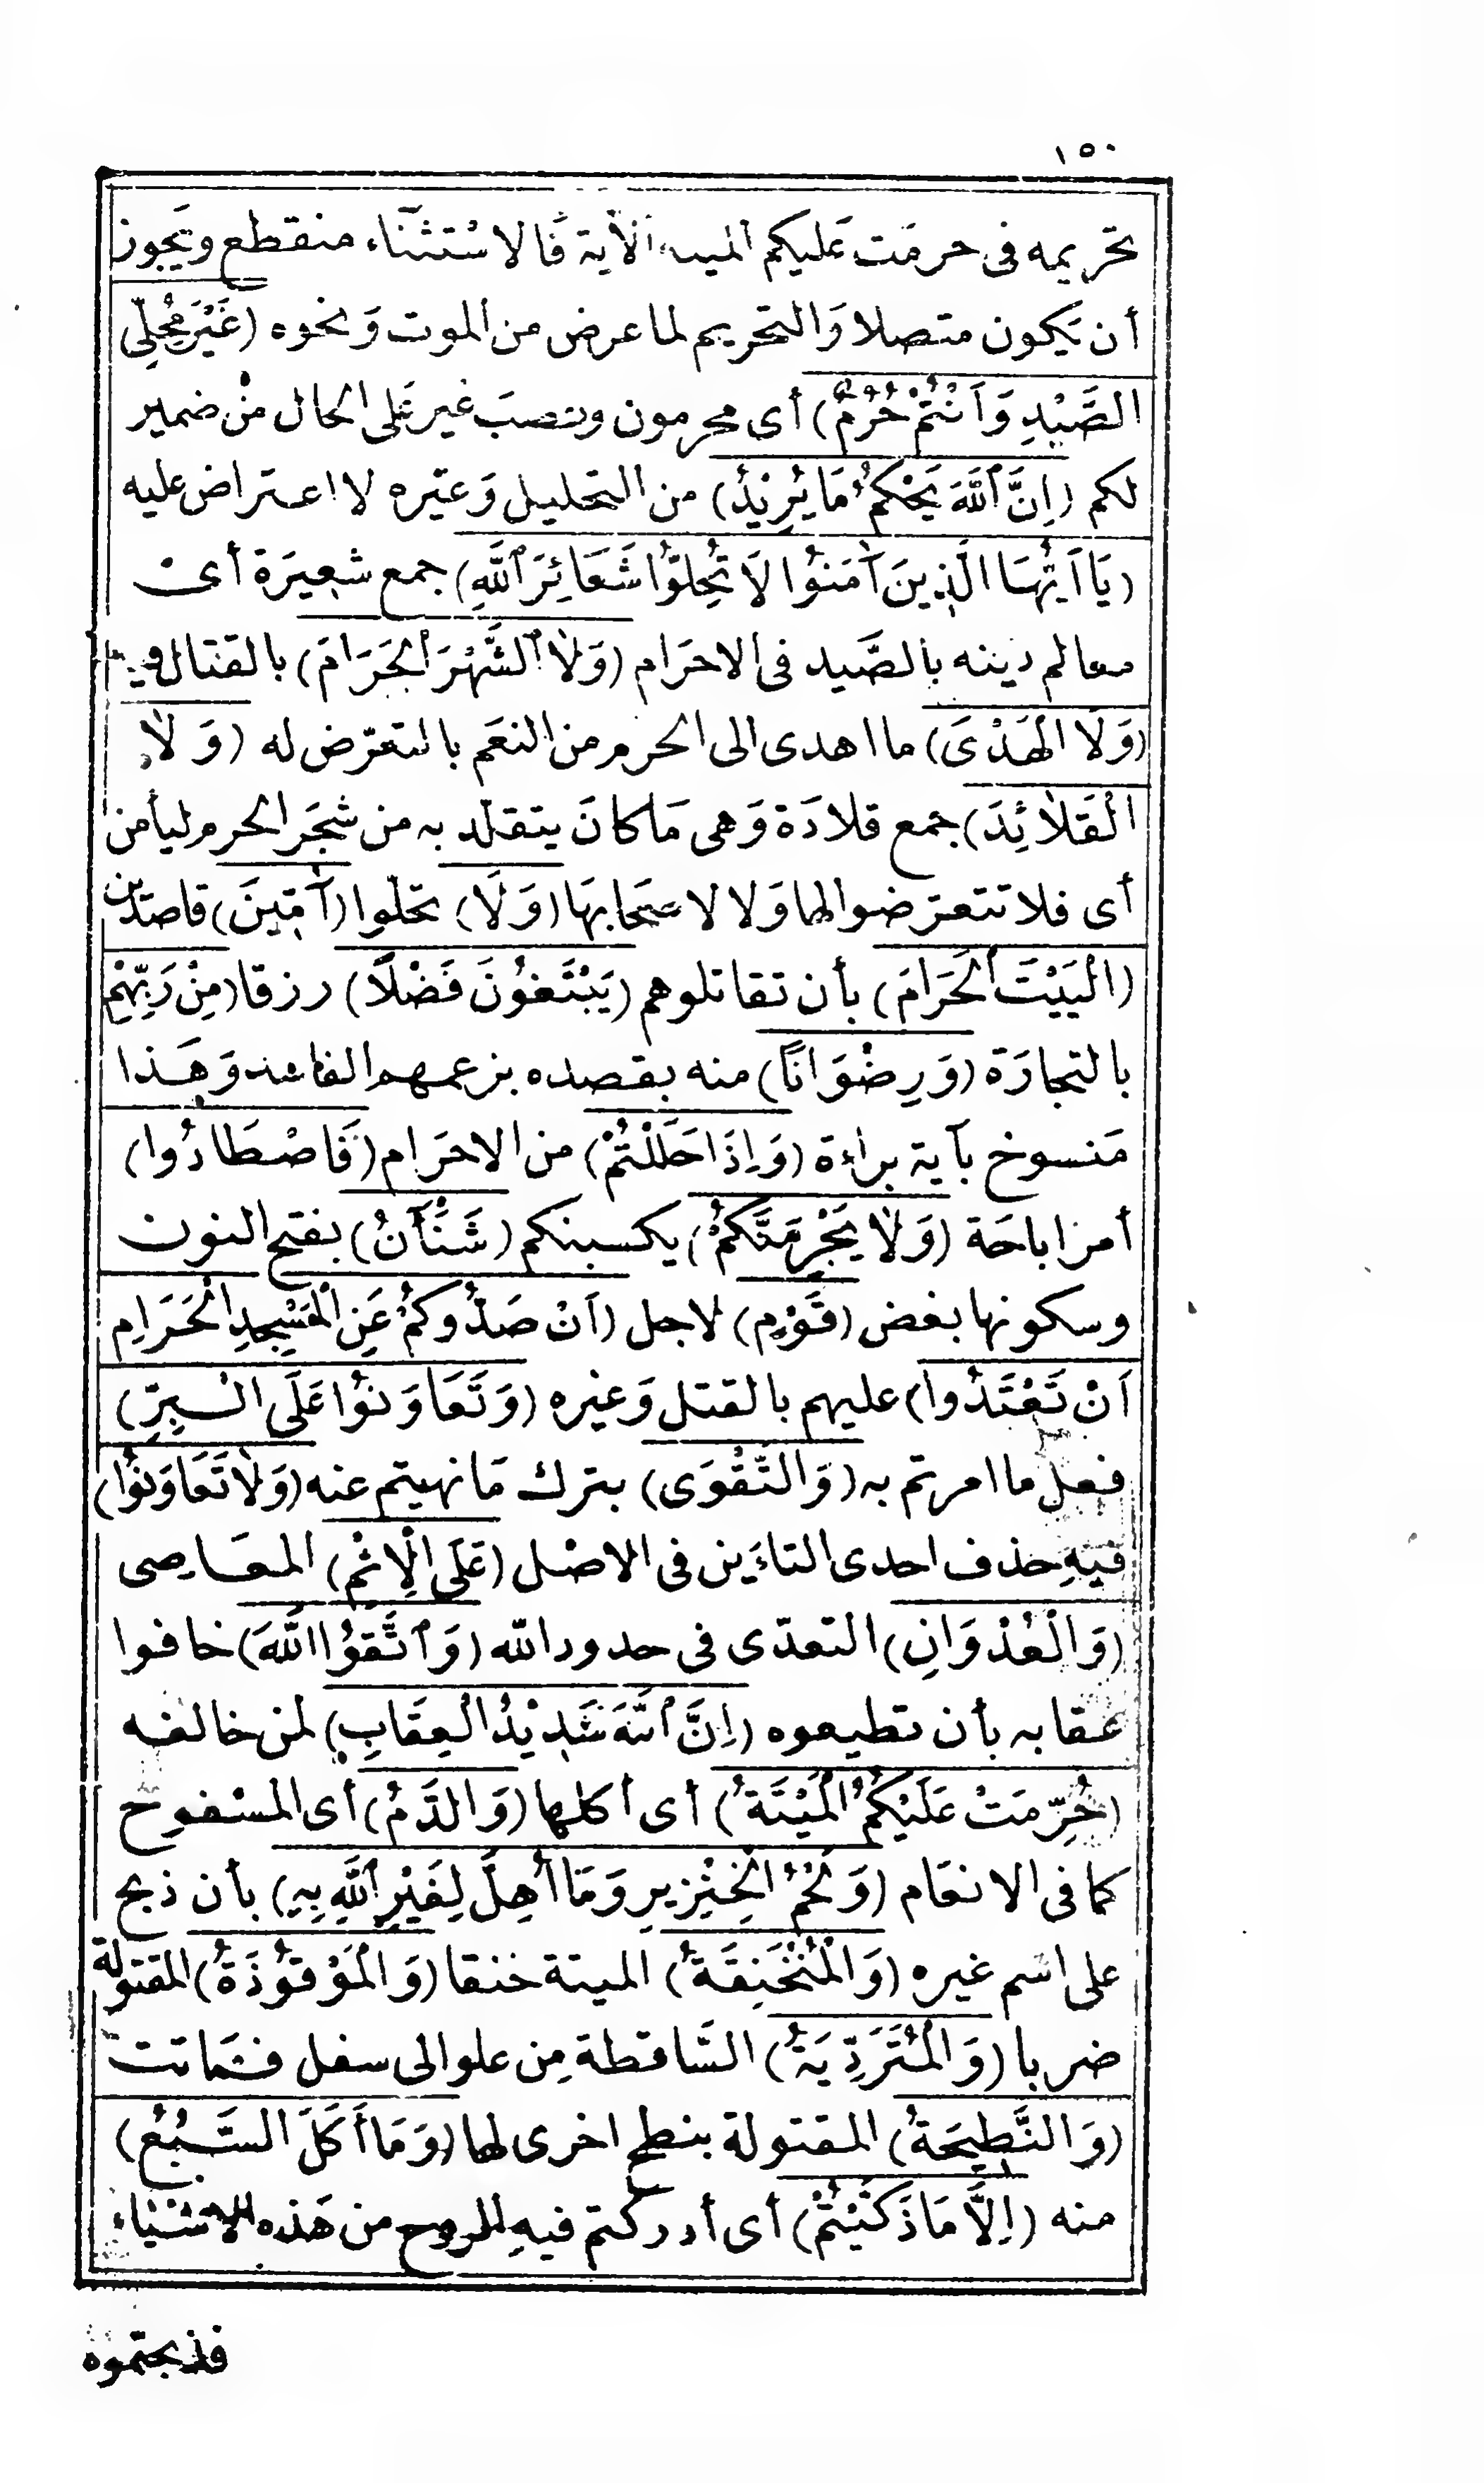 ١٥٠
تحريمه فى حرمَت عَليكم الميتة الآية فَالاسْتثنَاء منقطع ويَجوز
أن يَكون متصلا وَالتحريم لما عرض من الموت وَنحوه (غَيْرَ مُحِلِّى
الصَّيْدِ وَاَنْتُمْ حُرُمٌ) أى محرمون ونصبَ غير عَلى الحال منْ ضمير
لكم (اِنَّ ٱللَّهَ يَحْكُمُ مَا يُرِيْدُ) من التحليل وَغيره لا اعتراض عليه
(يَا اَيُّهَا الَّذِينَ آمَنُوْا لَا تُحِلُّوْا شَعَائِرَ ٱللَّهِ) جمع شعيرَة أىْ
معالم دينه بالصَّيد فى الاحرَام (وَلَا ٱلشَّهْرَ ٱلْحَرَامَ) بالقتال فيه
(وَلَا الْهَدْىَ) ما اهدى الى الحرم من النعَم بالتعرّض له (وَلَا
الْقَلَائِدَ) جمع قلادَة وَهى مَا كانَ يتقلد به من شجَر الحرم ليأمن
أى فلا تتعرّضوا لها وَلا لاصحَابهَا (وَلَا) تحلّوا (آمِّينَ) قاصدين
(الْبَيْتَ ٱلْحَرَامَ) بأن تقاتلوهم (يَبْتَغُوْنَ فَضْلًا) رزقا (مِنْ رَبِّهِمْ)
بالتجارَة (وَرِضْوَانًا) منه بقصده بزعمهم الفاسد وَهَذا
مَنسوخ بآية براءة (وَاِذَا حَلَلْتُمْ) من الاحرَام (فَاصْطَادُوا)
أمر اباحَة (وَلَا يَجْرِمَنَّكُمْ) يكسبنكم (شَنَآنُ) بفتح النون
وسكونها بغض (قَوْمٍ) لاجل (اَنْ صَدُّوكُمْ عَنِ الْمَسْجِدِ الْحَرَامِ
اَنْ تَعْتَدُوا) عليهم بالقتل وَغيره (وَتَعَاوَنُوْا عَلَى الْبِرِّ)
فعل ما امرتم به (وَالتَّقْوَى) بترك مَا نهيتم عنه (وَلَا تَعَاوَنُوْا)
فيهِ حذف احدى التاءَين فى الاصْل (عَلَى الْاِثْمِ) المعَاصِى
(وَالْعُدْوَانِ) التعدّى فى حدود الله (وَٱتَّقُوْا اللَّهَ) خافوا
عقابه بأن تطيعوه (اِنَّ ٱللَّهَ شَدِيْدُ الْعِقَابِ) لمن خالفه
(حُرِّمَتْ عَلَيْكُمُ الْمَيْتَةُ) أى أكلها (وَالدَّمُ) أى المسْفوح
كما فى الانعَام (وَلَحْمُ الْخِنْزِيرِ وَمَا أُهِلَّ لِغَيْرِ ٱللَّهِ بِهِ) بأن ذبح
على اسْم غيره (وَالْمُنْخَنِقَةُ) الميتة خنقا (وَالْمَوْقُوْذَةُ) المقتولة
ضربا (وَالْمُتَرَدِّيَةُ) السَّاقطة مِن علو الى سفل فمَاتت
(وَالنَّطِيحَةُ) المقتولة بنطح اخرى لها (وَمَا أَكَلَ السَّبُعُ)
منه (اِلَّا مَا ذَكَّيْتُمْ) أى أدركتم فيهِ الروح من هَذه الاشْيَاء
فذبحتموه